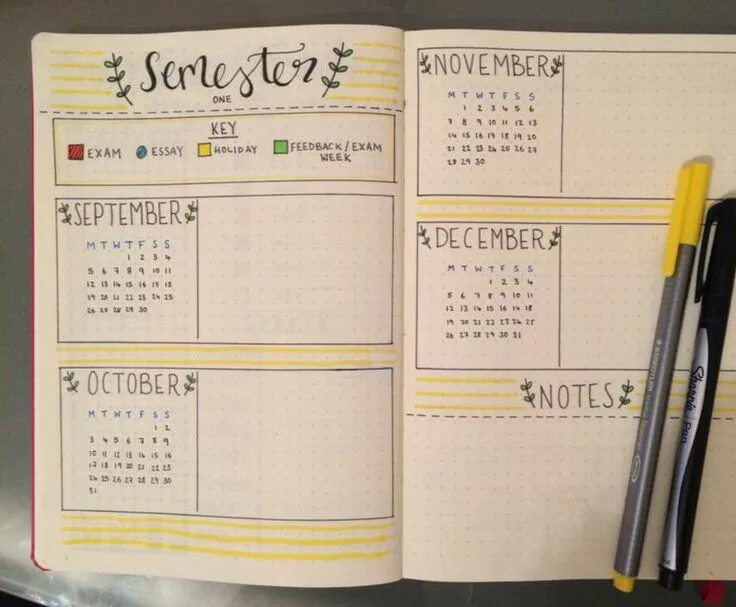 Semester
ONE
KEY
EXAM ESSAY HOLIDAY FEEDBACK/EXAM
WEEK
SEPTEMBER
M T W T F S S
1 2 3 4
5 6 7 8 9 10 11
12 13 14 15 16 17 18
19 20 21 22 23 24 25
26 27 28 29 30
OCTOBER
M T W T F S S
1 2
3 4 5 6 7 8 9
10 11 12 13 14 15 16
17 18 19 20 21 22 23
24 25 26 27 28 29 30
31
NOVEMBER
M T W T F S S
1 2 3 4 5 6
7 8 9 10 11 12 13
14 15 16 17 18 19 20
21 22 23 24 25 26 27
28 29 30
DECEMBER
M T W T F S S
1 2 3 4
5 6 7 8 9 10 11
12 13 14 15 16 17 18
19 20 21 22 23 24 25
26 27 28 29 30 31
NOTES
STAEDTLER
Sharpie Pen